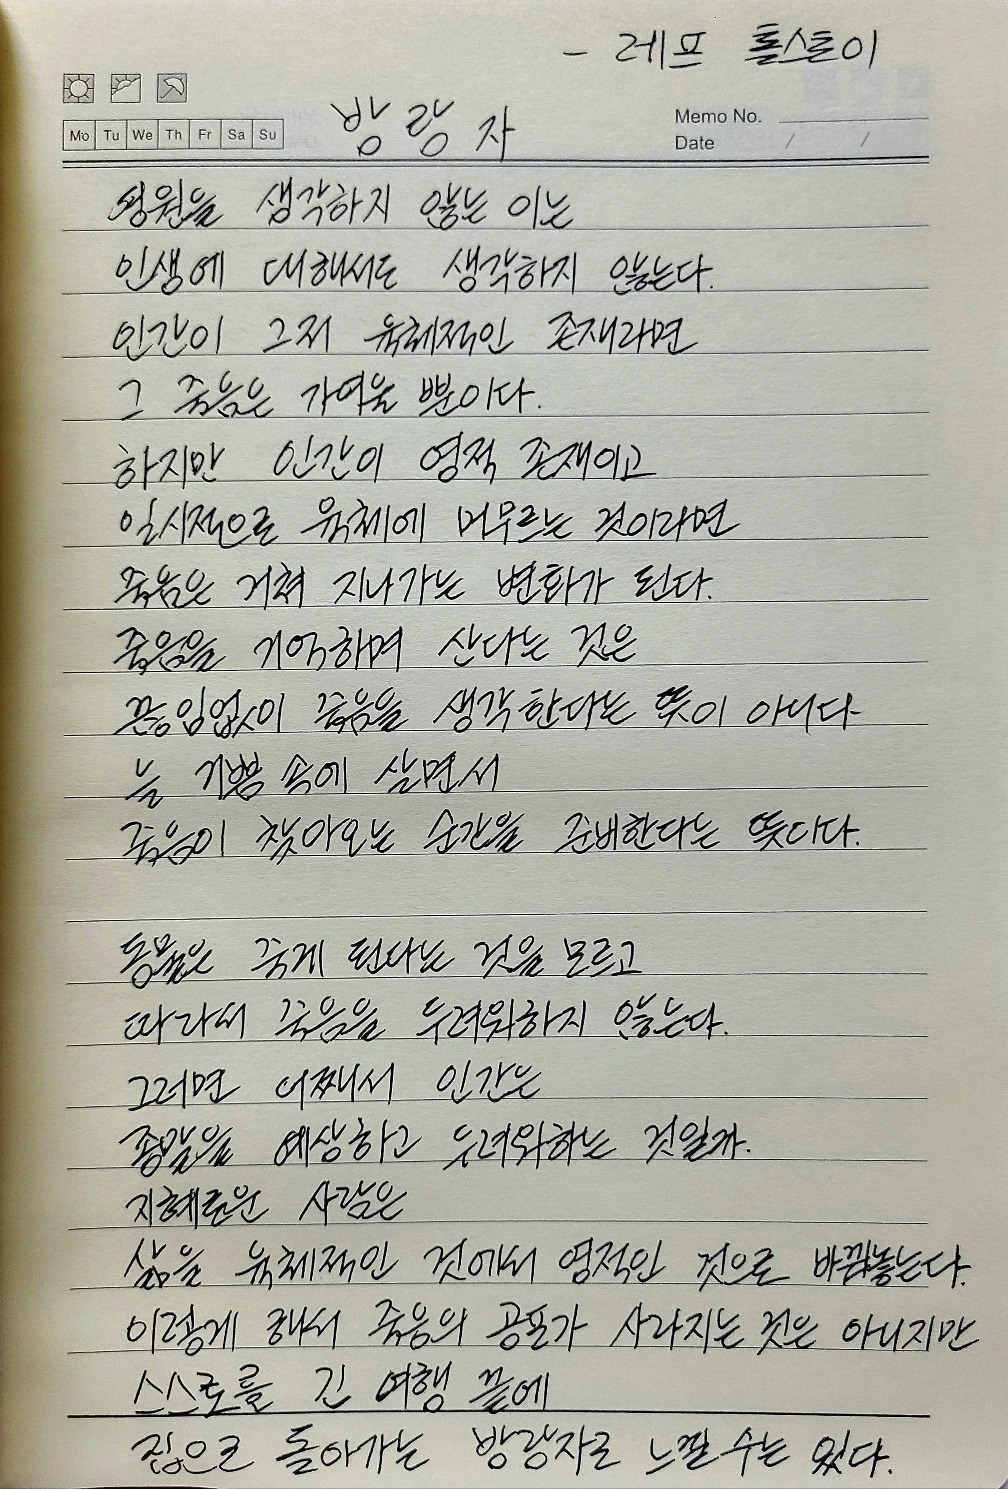 - 레프 톨스토이
방랑자
Memo No.
Mo Tu We Th Fr Sa Su
Date / /
영원을 생각하지 않는 이는
인생에 대해서도 생각하지 않는다.
인간이 그저 육체적인 존재라면
그 죽음은 가여울 뿐이다.
하지만 인간이 영적 존재이고
일시적으로 육체에 머무르는 것이라면
죽음은 거쳐 지나가는 변화가 된다.
죽음을 기억하며 산다는 것은
끊임없이 죽음을 생각한다는 뜻이 아니다
늘 기쁨 속에 살면서
죽음이 찾아오는 순간을 준비한다는 뜻다다.
동물은 죽게 된다는 것을 모르고
따라서 죽음을 두려워하지 않는다.
그러면 어째서 인간은
종말을 예상하고 두려워하는 것일까.
지혜로운 사람은
삶을 육체적인 것에서 영적인 것으로 바꿔놓는다.
이렇게 해서 죽음의 공포가 사라지는 것은 아니지만
스스로를 긴 여행 끝에
집으로 돌아가는 방랑자로 느낄 수는 있다.